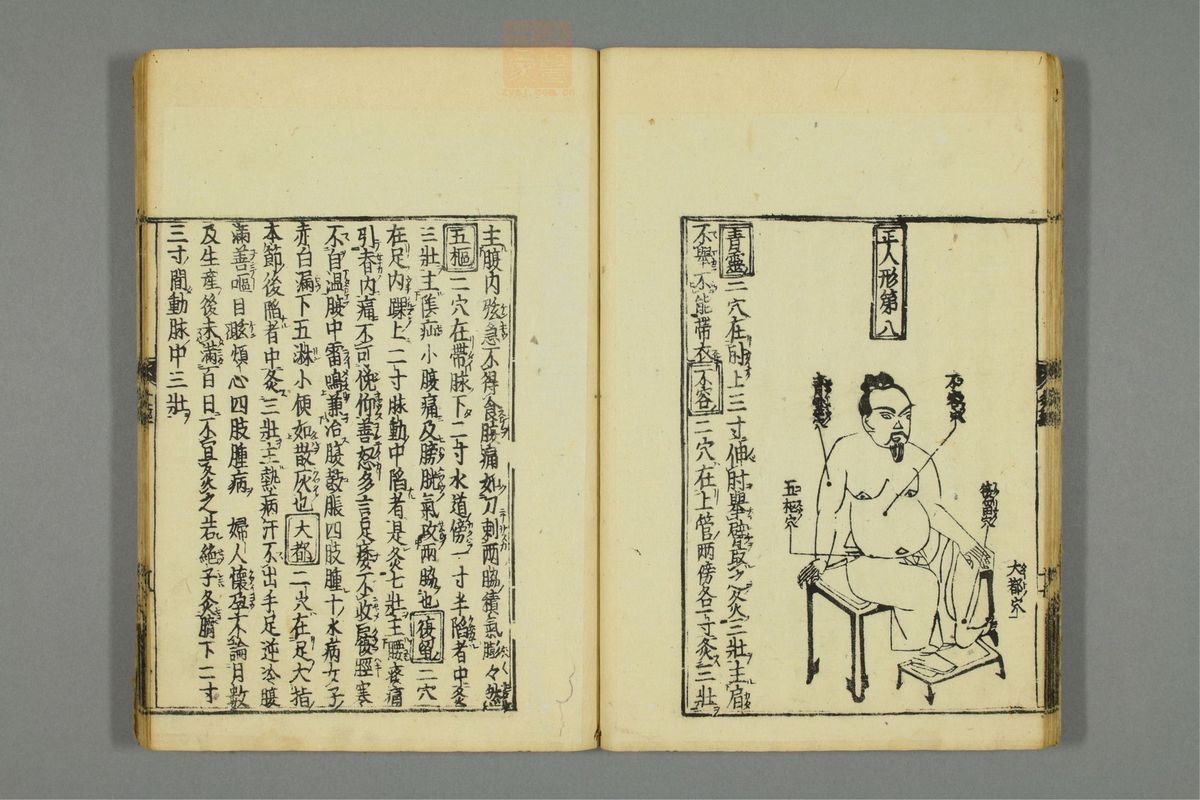 正人形第八
不容穴
青靈穴
五樞穴
復留穴
大都穴
青靈二穴在肘上三寸伸肘擧臂取之灸三壯主肩
不擧不能帶衣不容二穴在上管兩傍各一寸灸三壯
主腹內弦急不得食腹痛如刀刺兩脇積氣膨々然
五樞二穴在帶脉下二寸水道傍一寸半陷者中灸
三壯主陰疝小腹痛及膀胱氣攻兩脇也復留二穴
在足内踝上二寸脉動中陷者是灸七壯主腰疼痛
引脊内痛不可俛仰善怒多言足痿不收履脛寒
不自温腹中雷鳴兼治腹鼓脹四肢腫十水病女子
赤白漏下五淋小便如散灰也大都二穴在足大指
本節後陷者中灸三壯主熱病汗不出手足逆冷腹
滿善嘔目眩煩心四肢腫病 婦人懷孕不論月數
及生産後未滿百日不宜灸之若絶子灸臍下二寸
三寸間動脉中三壯